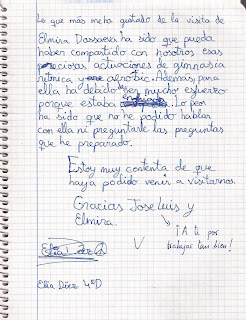 Lo que más me ha gustado de la visita de
Elmira Dassaeva ha sido que pueda
haber compartido con nosotros esas
preciosas actuaciones de gimnasia
rítmica y aerobic. Además, para
ella ha debido ser mucho esfuerzo
porque estaba Lo peor
ha sido que no he podido hablar
con ella ni preguntarle las preguntas
que he preparado.
Estoy muy contenta de que
haya podido venir a visitarnos.
Gracias Jose Luis y
Elmira.
¡A ti por
trabajar tan bien!
Elia Díez
Elia Díez 4ºD